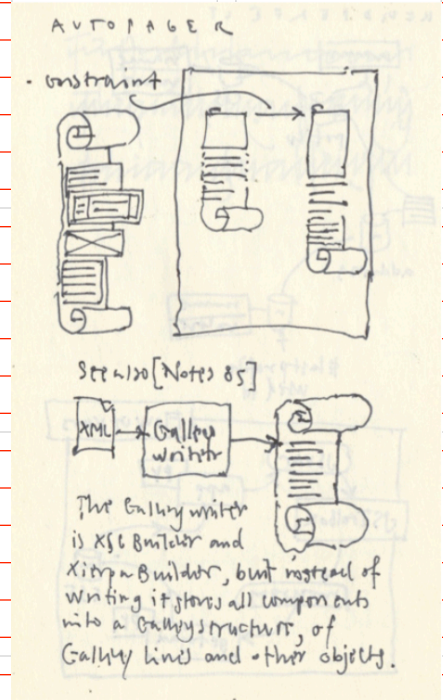 AUTOPAGER
- constraint
See also [Notes 85]
XML
Galley
writer
The Galley writer
is XSC Builder and
Builder, but instead of
writing it stores all components
into a Galley structure, of
Galley Lines and other objects.